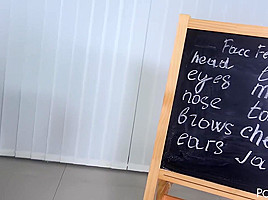 Face Fe
head
eyes m
nose to
brows che
ears Ja
PO